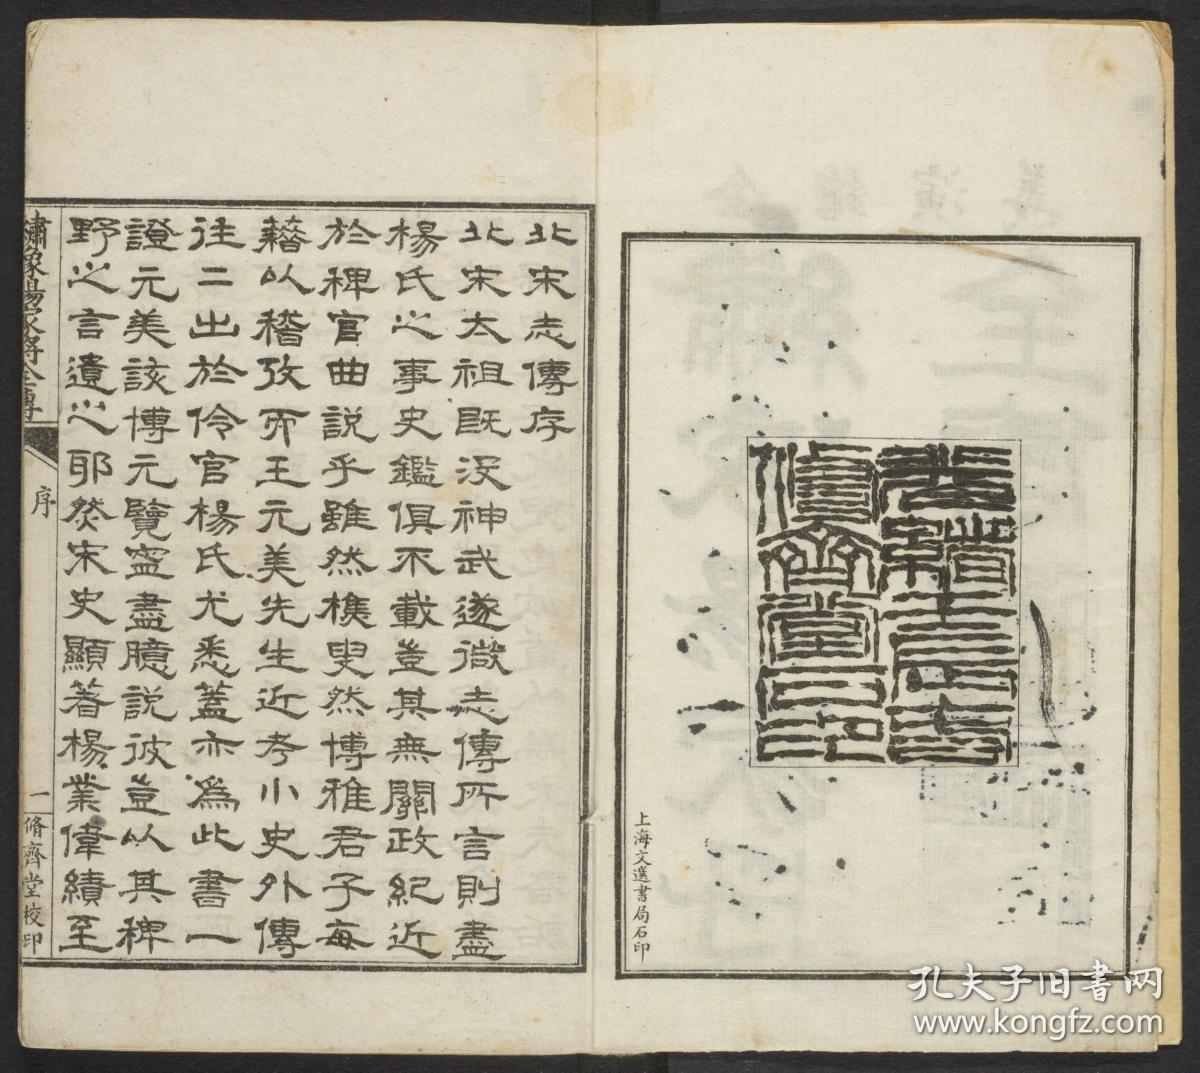 脩齊堂石印
上海文選書局石印
北宋志傳序
北宋太祖既沒神武遂微志傳所言則盡
楊氏之事史鑑俱不載豈其無關政紀近
於稗官曲説乎雖然樵叟然博雅君子每
藉以稽攷而王元美先生近考小史外傳
往二出於伶官楊氏尤悉蓋亦爲此書一
證元美該博元覽寍盡臆説彼豈以其稗
野之言遺之耶然宋史顯著楊業偉績至
繡像楊家將全傳
序
一
脩齊堂校印
孔夫子旧书网
www.kongfz.com